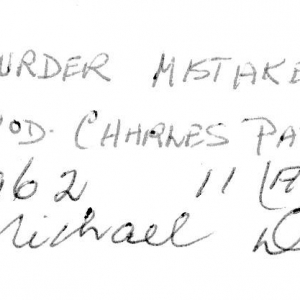 URDER MISTAKE
OD. CHARLES PA
962 11
Michael D